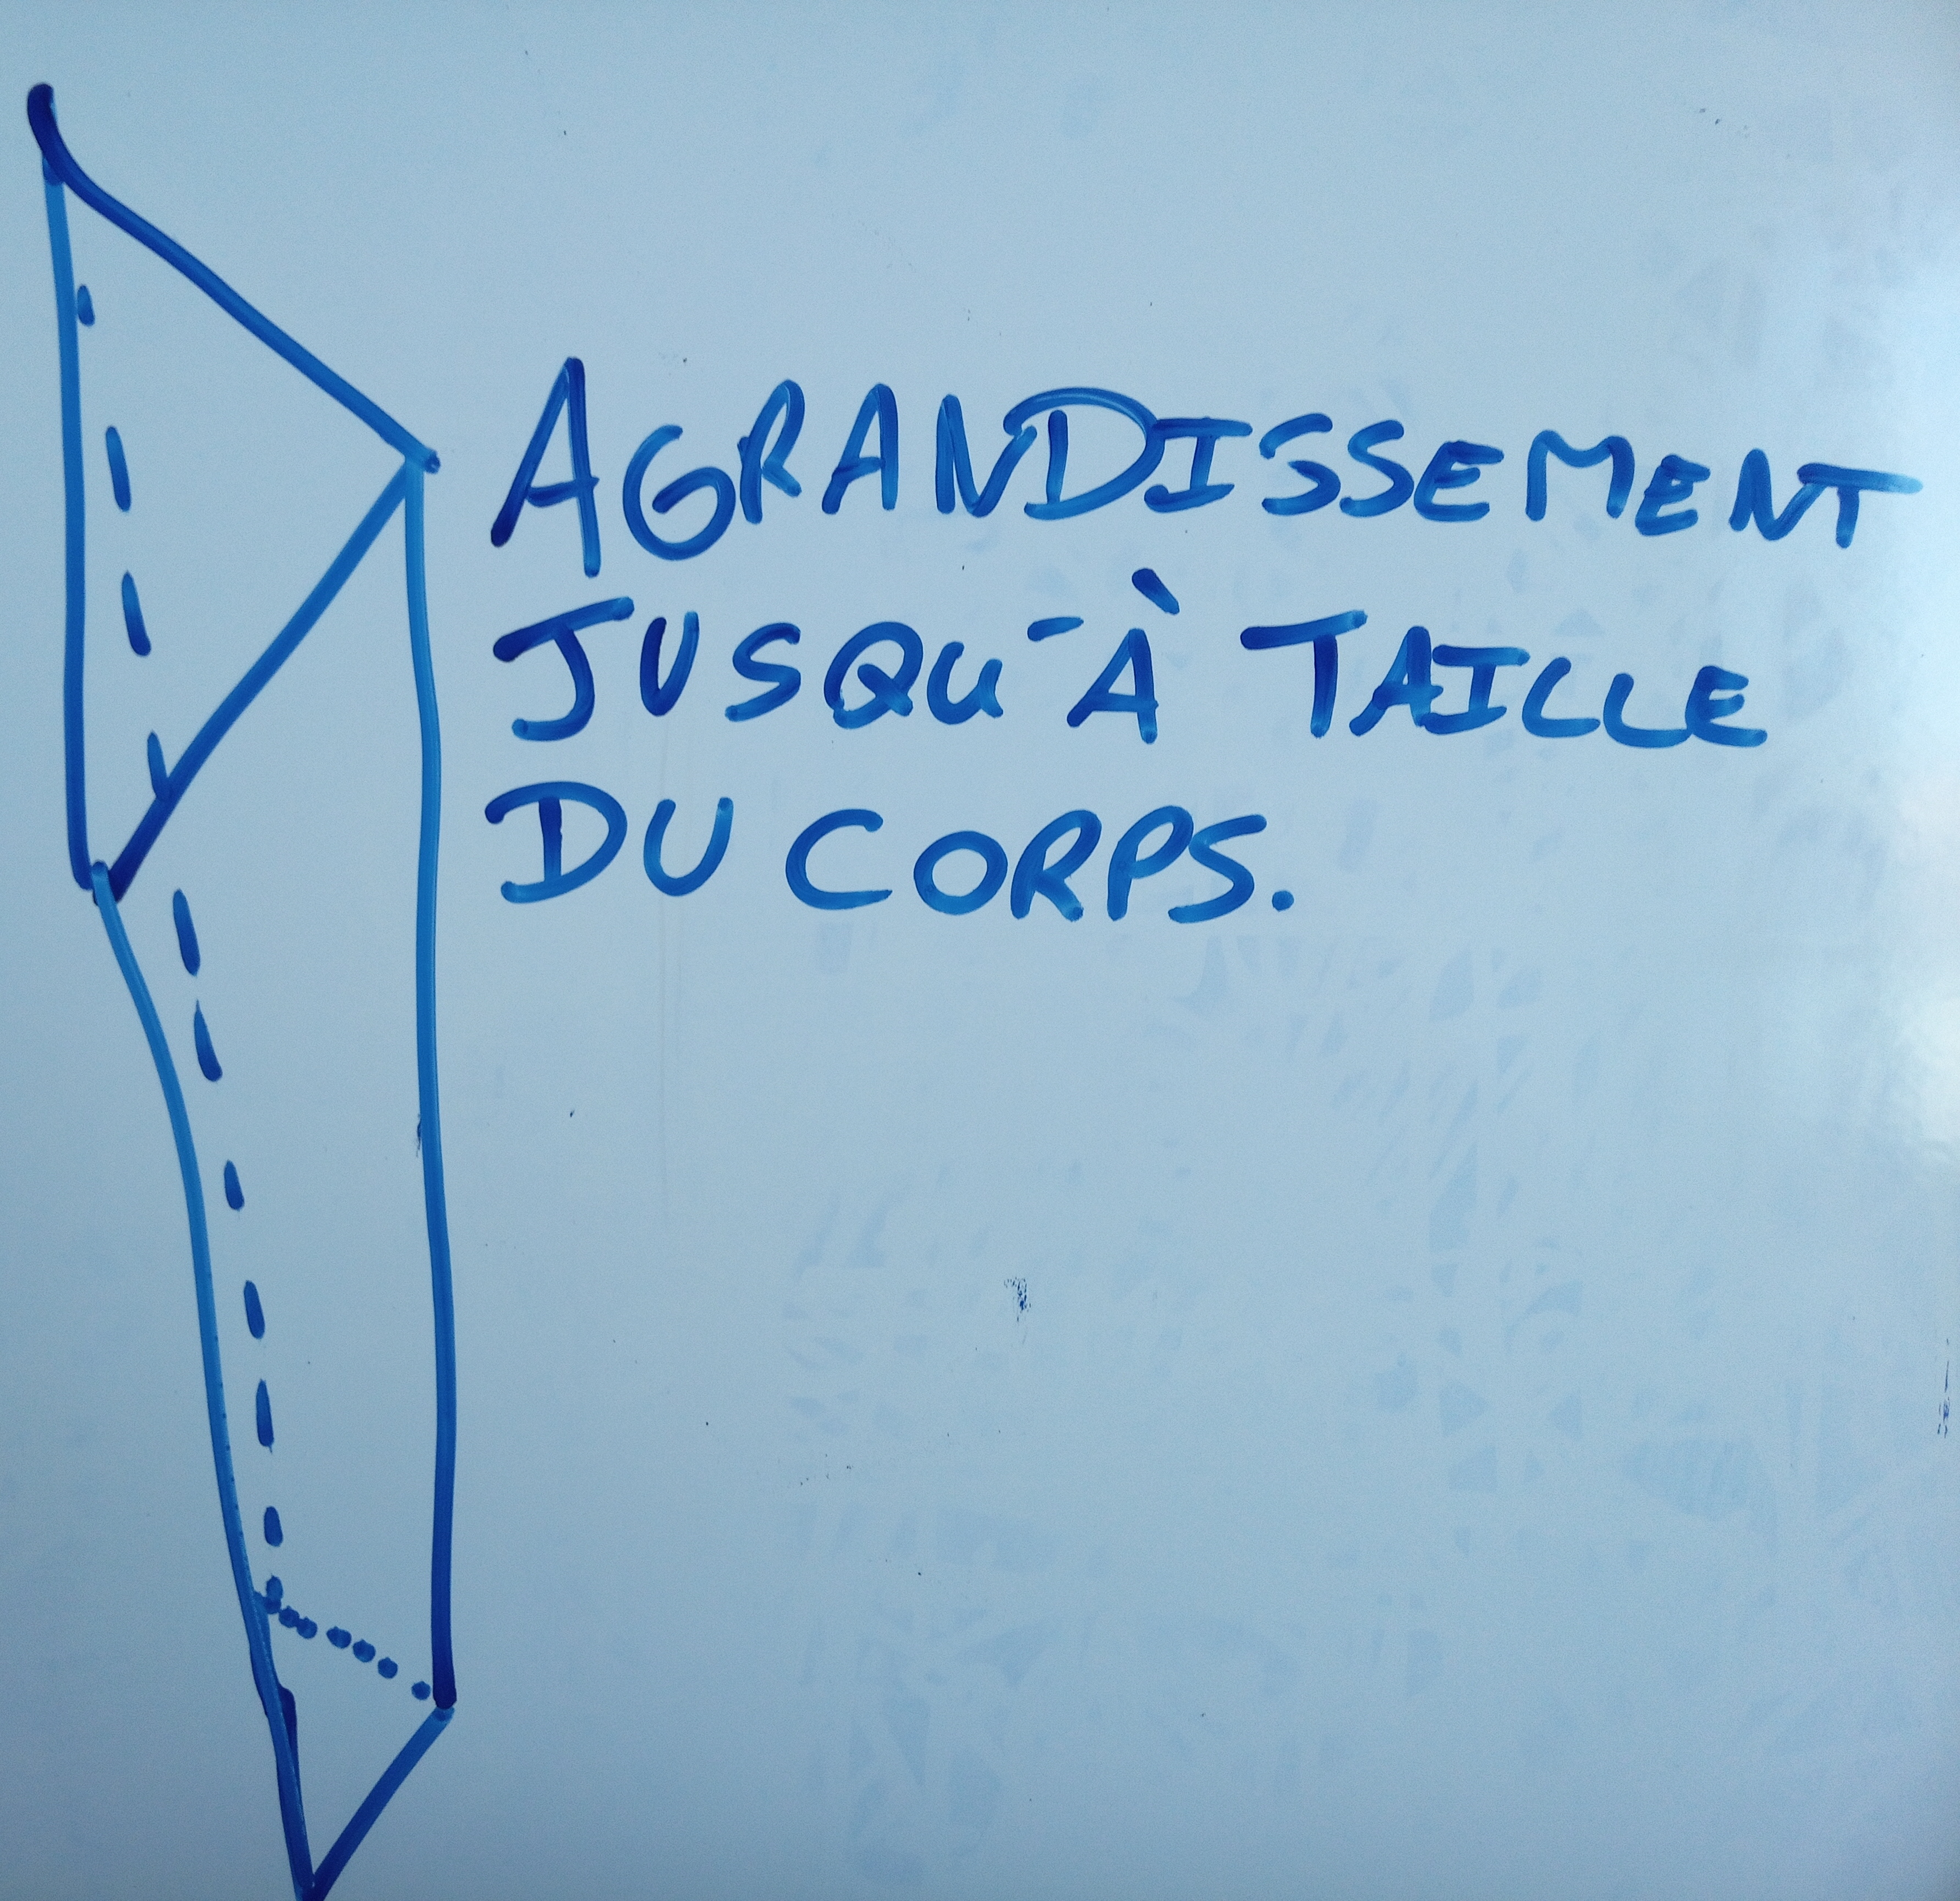 AGRANDISSEMENT
JUSQU'À TAILLE
DU CORPS.